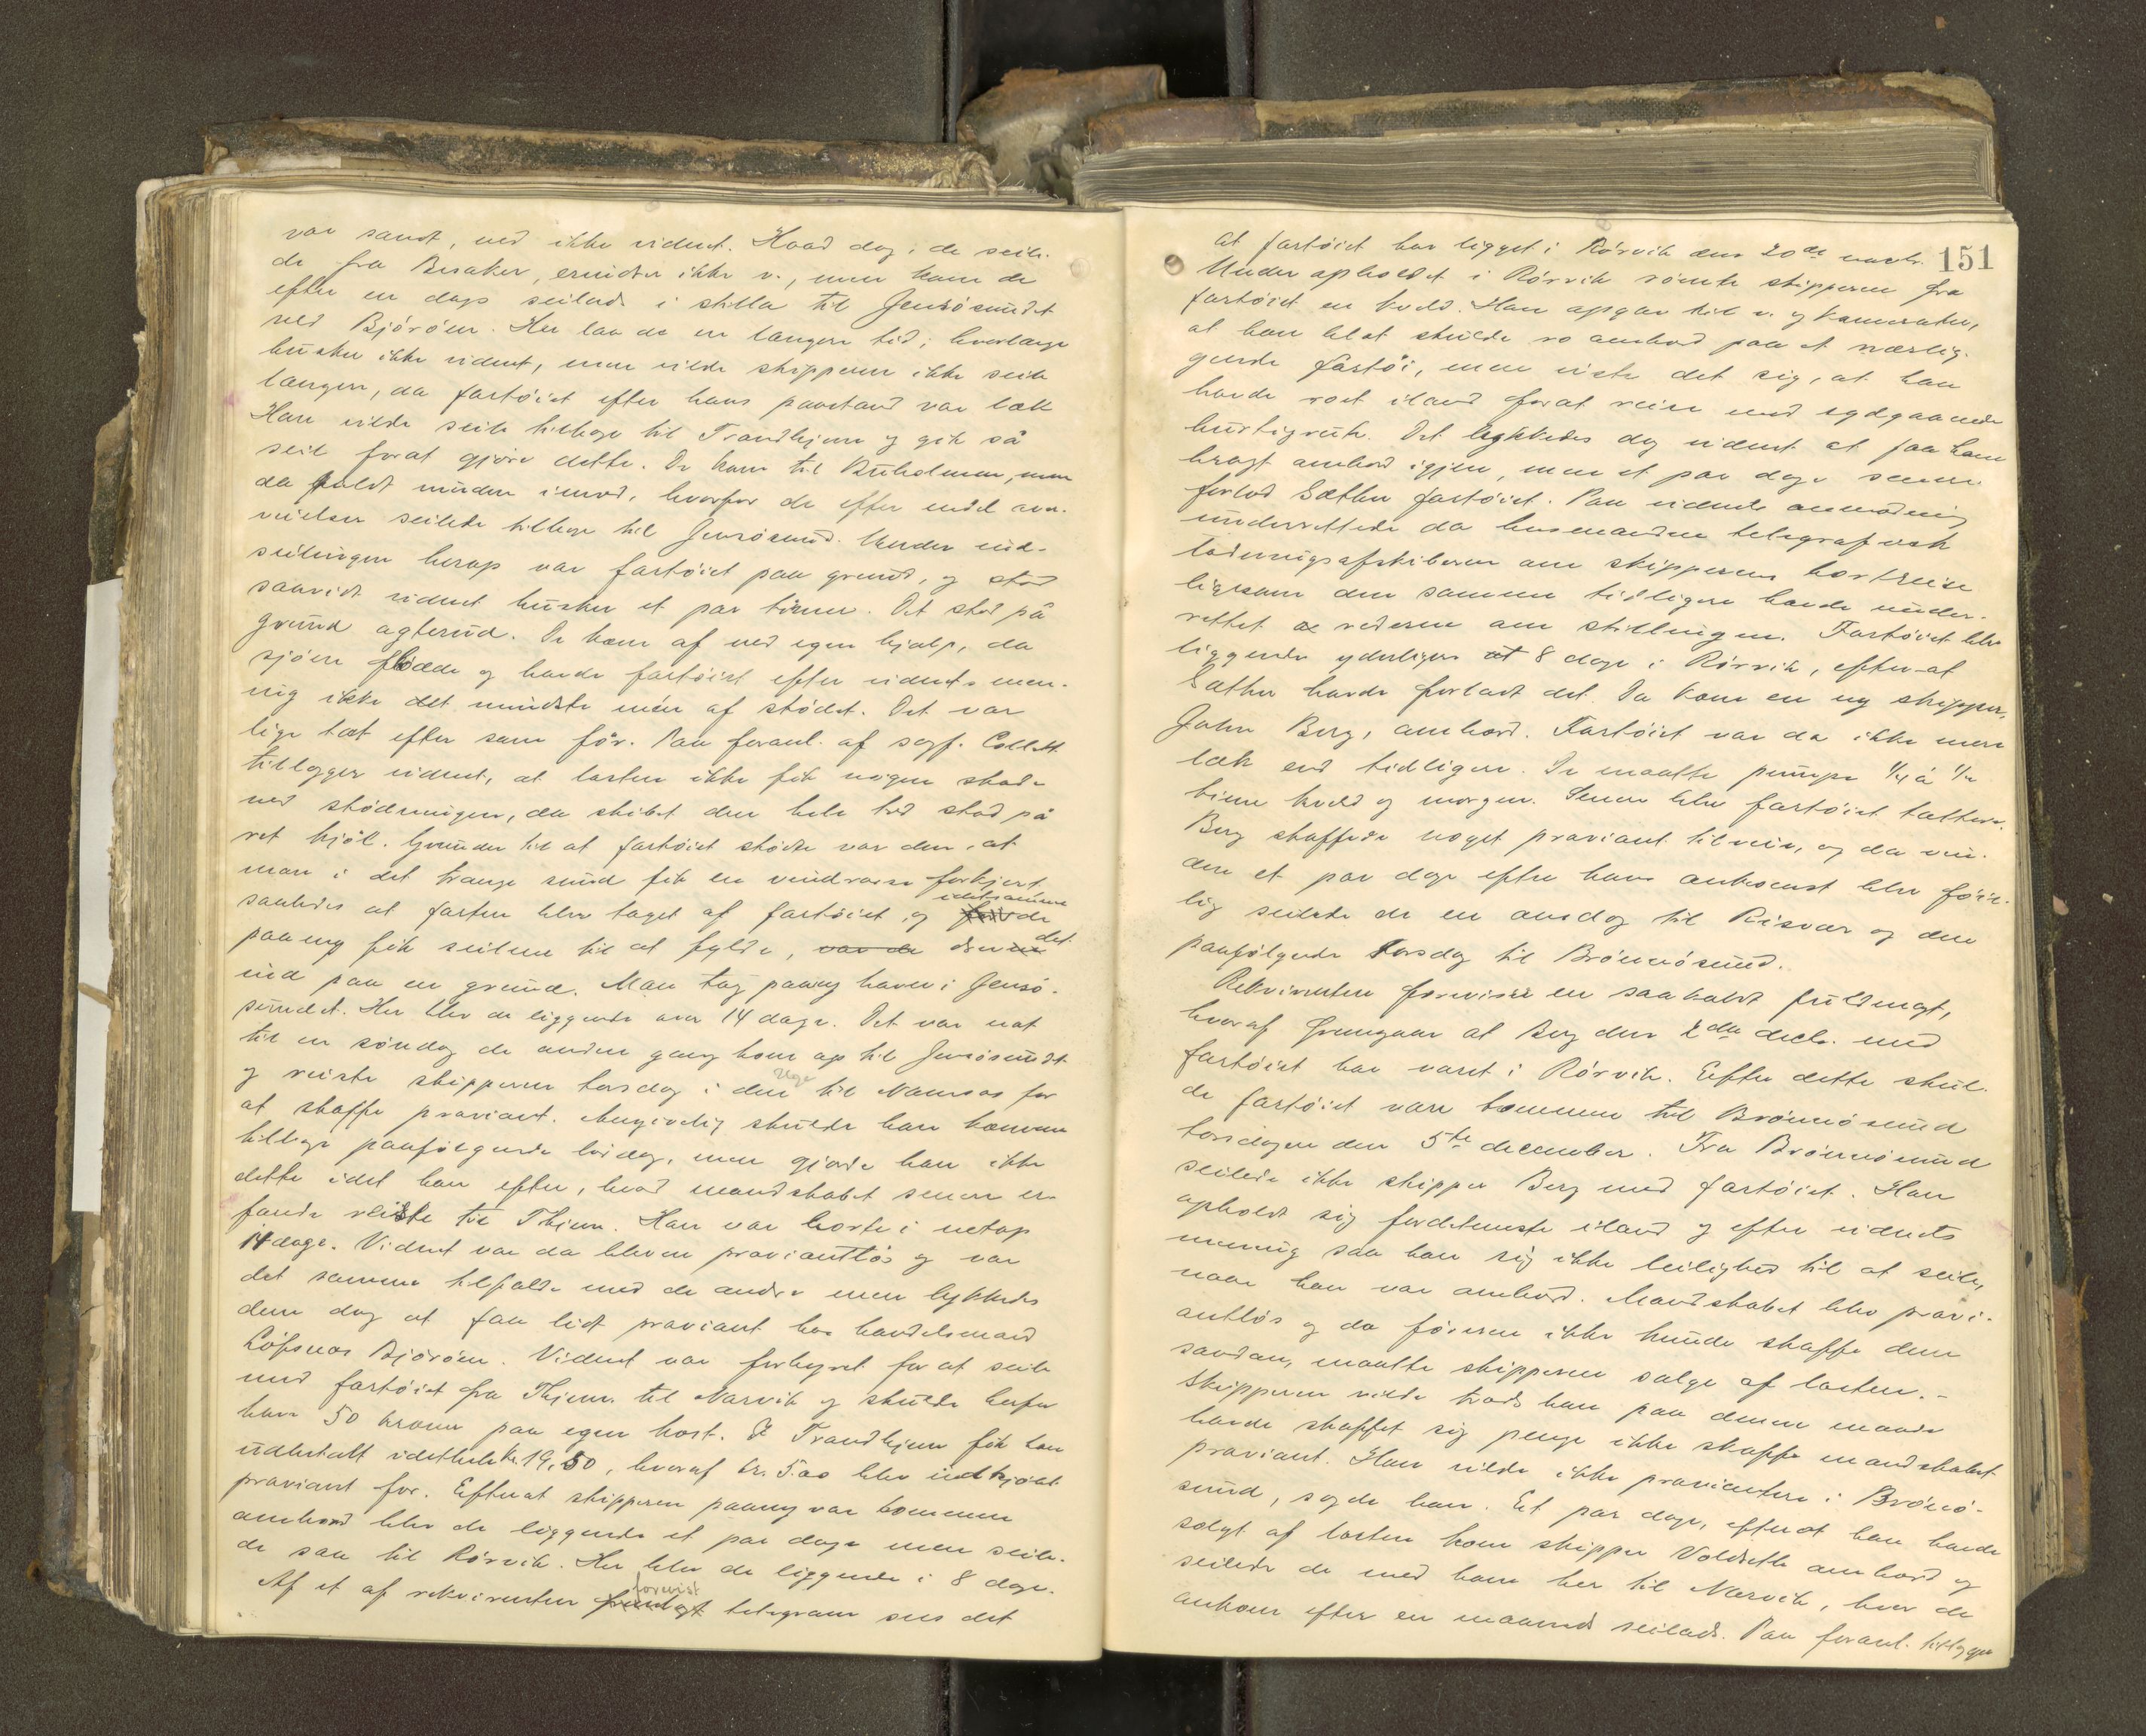 var sandt, ved ikke vidnet. Hvad dag, de seile-
de fra Besaker, erindrer ikke v., men kom de
efter en dags seilads i stilla til Jensøsundet
ved Bjørøen. Her laa de en længere tid; hvorlænge
husker ikke vidnet, men vilde skipperen ikke seile
længer, da fartøiet efter hans paastand var læk
Han vilde seile tilbage til Trondhjem og gik så
seil forat gjøre dette. De kom til Buholmen, men
da faldt vinden imod, hvorfor de efter endel
seilede tilbage til Jensøsund. Under ind-
seilingen herop var fartøiet paa grund, og stod
saavidt vidnet husker et par timer. Det stod på
grund agterud. De kom af ved egen hjælp, da
sjøen flødde og havde fartøiet efter vidnets men-
ing ikke det mindste mén af stødet. Det var
lige tæt efter som før. Paa foranl. af sagf. Collett
tillægger vidnet, at lasten ikke fik nogen skade
ved stødningen, da skibet den hele tid stod på
ret kjøl. Grunden til at fartøiet stødte var den, at
man i det trange sund fik en vindrosse forkjert
saaledes at farten blev taget af fartøiet, og idetsamme de
paany fik seilene til at fylde, var de drev det
ind paa en grund. Man tog paany havn i Jensø-
sundet. Her blev de liggende over 14 dage. Det var nat
til en søndag de anden gang kom op til Jensøsundt
og reiste skipperen torsdag i den uge til Namsos for
at skaffe proviant. Angivelig skulde han komme
tilbage paafølgende lørdag, men gjorde han ikke
dette idet han efter, hvad mandskabet senere er-
farede reiste til Thjem. Han var borte i netop
14 dage. Vidnet var da bleven proviantløs og var
det samme tilfælde med de andre men lykkedes
dem dog at faa lidt proviant hos handelsmand
Løfsnæs Bjørøen. Vidnet var forhyret for at seile
med fartøiet fra Thjem. til Narvik og skulde herfor
have 50 kroner paa egen kost. I Trondhjem fik han
udbetalt idethele kr. 19,50, hvoraf kr. 5.00 blev indkjøbt
proviant for. Efterat skipperen paany var kommen
ombord blev de liggende et par dage men seile-
de saa til Rørvik. Her blev de liggende i 8 dage.
Af et af rekvirenten forevist telegram sees det
151
at fartøiet har ligget i Rørvik den 20de novbr.
Under opholdet i Rørvik rømte skipperen fra
fartøiet en kveld. Han opgav til v. og kamerater,
at han blot skulde ro ombord paa et nærlig-
gende fartøi, men viste det sig, at han
havde roet iland forat reise med sydgaaende
hurtigrute. Det lykkedes dog vidnet at faa ham
bragt ombord igjen, men et par dage senere
forlod Sæther fartøiet. Paa vidnets anmodning
underrettede da lensmanden telegrafisk
ladningsafskiberen om skipperens bortreise
ligesom den samme tidligere havde under-
rettet rederen om stillingen. Fartøiet blev
liggende yderligere 8 dage i Rørvik, efter at
Sæther havde forladt det. Da kom en ny skipper,
John Berg, ombord. Fartøiet var da ikke mere
læk end tidligere. De maatte pumpe 1/4 à 1/2
time kveld og morgen. Senere blev fartøiet tættere.
Berg skaffede noget proviant tilveie, og da vin-
den et par dage efter hans ankomst blev føie-
lig seilede de en onsdag til Risvær og den
paafølgende torsdag til Brønnøsund.
Rekvirenten foreviste en saakaldt fuldmagt,
hvoraf fremgaar at Berg den 2den decbr. med
fartøiet har været i Rørvik. Efter dette skul-
de fartøiet være kommen til Brønnøsund
torsdagen den 5te december. Fra Brønnøsund
seilede ikke skipper Berg med fartøiet. Han
opholdt sig fordetmeste iland og efter vidnets
mening saa han sig ikke leilighed til at seile,
naar han var ombord. Mandskabet blev provi-
antløs og da føreren ikke kunde skaffe dem
saadan, maatte skipperen sælge af lasten. -
Skipperen vilde trods han paa denne maade
havde skaffet sig penge ikke skaffe mandskabet
proviant. Han vilde ikke proviantere i Brønø-
sund, sagde han. Et par dage, efterat han havde
solgt af lasten kom skipper Voldseth ombord og
seilede de med ham her til Narvik, hvor de
ankom efter en maaneds seilads. Paa foranl. tillægger